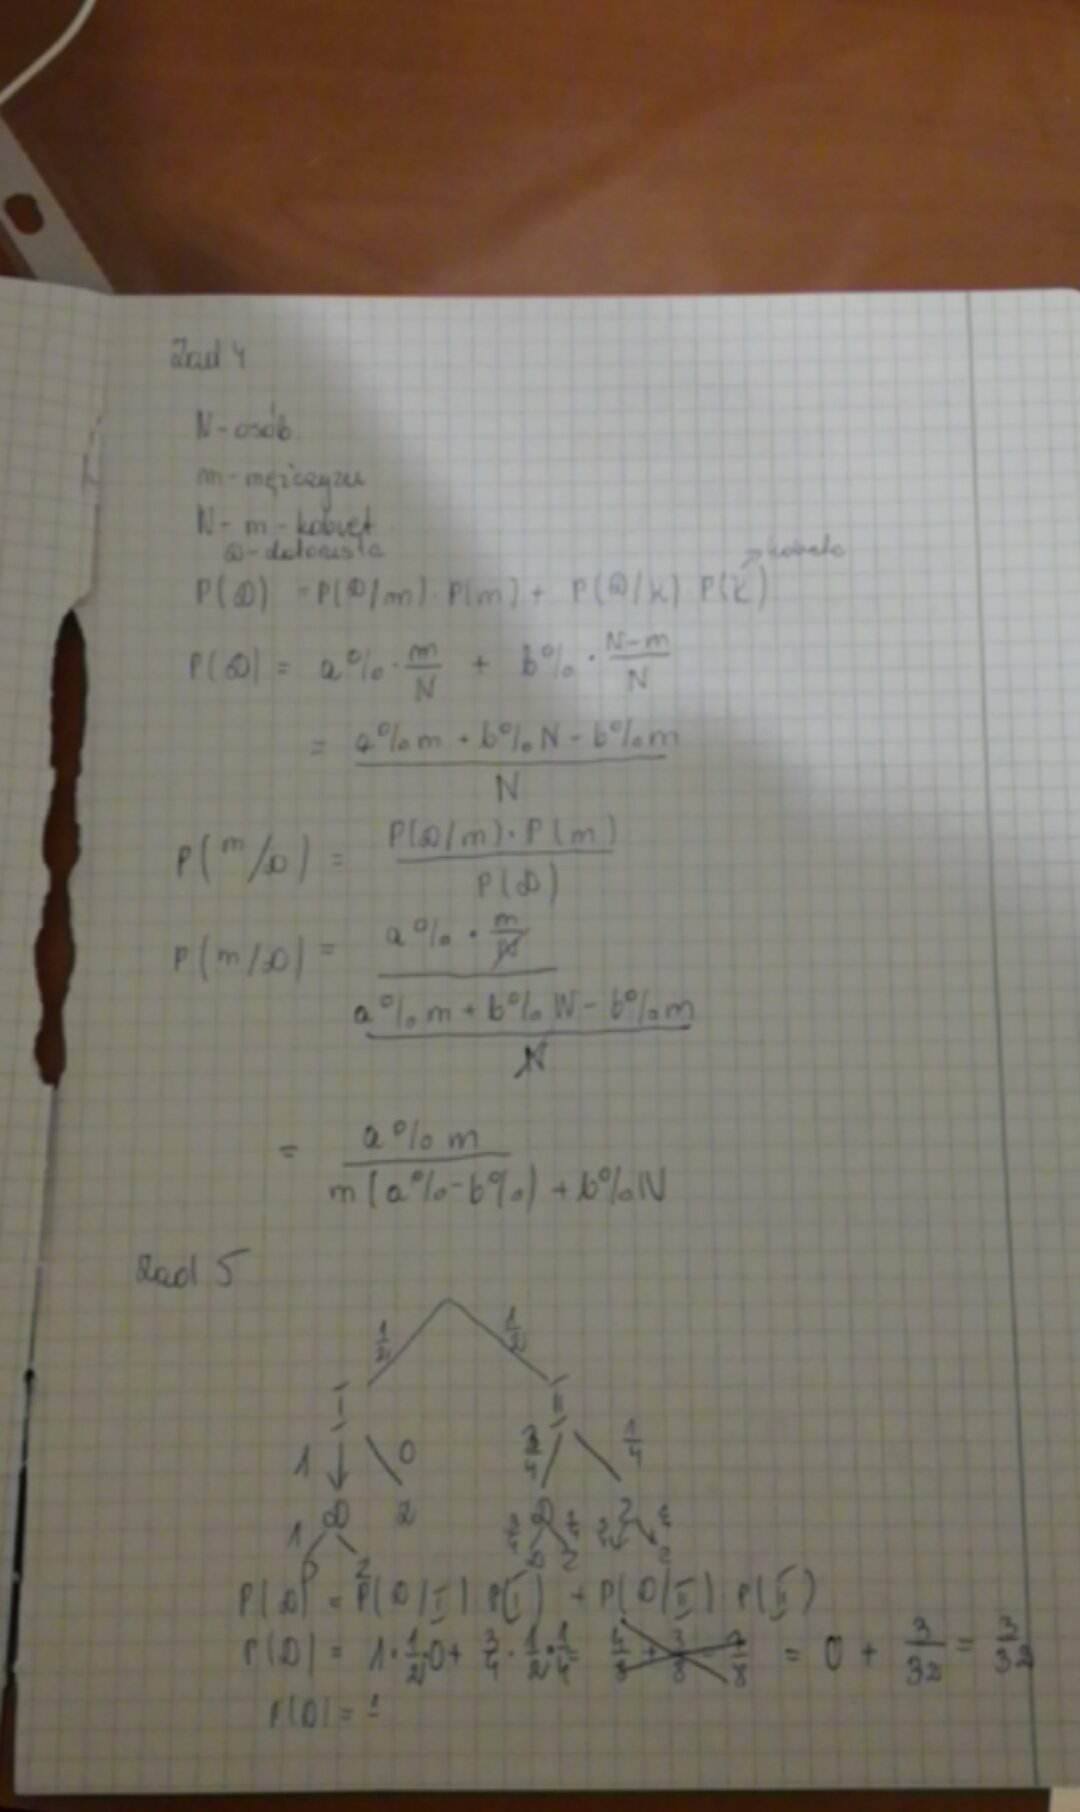 Zad 4
N - osób
m - mężczyzn
N - m - kobiet
D - daltonista
P(D) = P(D/m) · P(m) + P(D/K) P(K) → kobieta
P(D) = a% · m/N + b% · N-m/N
= a%m + b%N - b%m / N
P(m/D) = P(D/m) · P(m) / P(D)
P(m/D) = a% · m/N / a%m + b%N - b%m / N
= a%m / m(a% - b%) + b%N
Zad 5
1/2 1/2
I II
1 0 3/4 1/4
D Z D Z
1 3/4 1/4 3/4 1/4
D Z D Z Z
P(D) = P(D/I) P(I) + P(D/II) P(II)
P(D) = 1 · 1/2 · 0 + 3/4 · 1/2 · 1/4 = = 0 + 3/32 = 3/32
P(D) =